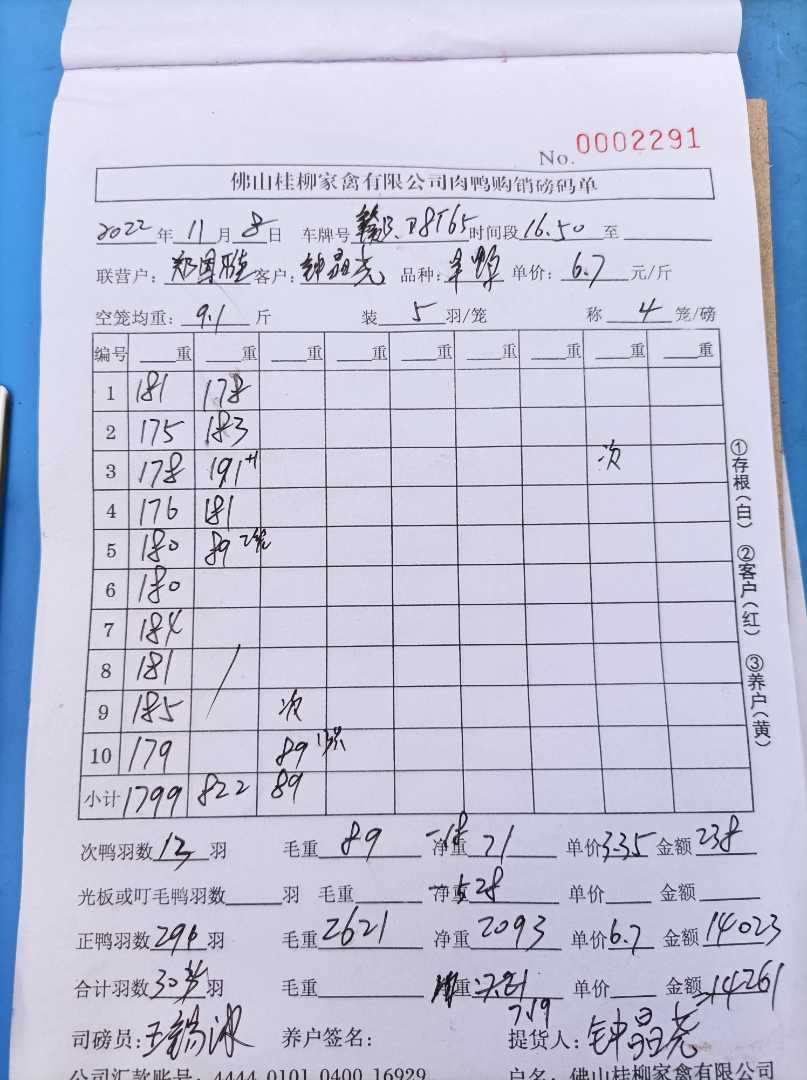 No. 0002291
佛山桂柳家禽有限公司肉鸭购销磅码单
2022年11月8日 车牌号 赣B.D8T65 时间段 16.50 至
联营户: 郑国胜 客户: 钟晶尧 品种: 单价: 6.7 元/斤
空笼均重: 9.1 斤 装 5 羽/笼 称 4 笼/磅
编号 重 重 重 重 重 重 重 重 重
1 181 178
2 175 183
3 178 191+1 次
4 176 181
5 180 89 2笼
6 180
7 184
8 181 /
9 185 次
10 179 89
小计 1799 822 89
次鸭羽数 12 羽 毛重 89 -18 净重 71 单价 3.35 金额 238
光板或叮毛鸭羽数 羽 毛重 净重 -528 单价 金额
正鸭羽数 296 羽 毛重 2621 净重 2093 单价 6.7 金额 14023
合计羽数 羽 毛重 重 单价 金额 14261
7.19
司磅员: 养户签名: 提货人: 钟晶尧
公司汇款账号: 4444 0101 0400 16929 户名: 佛山桂柳家禽有限公司
①存根(白) ②客户(红) ③养户(黄)